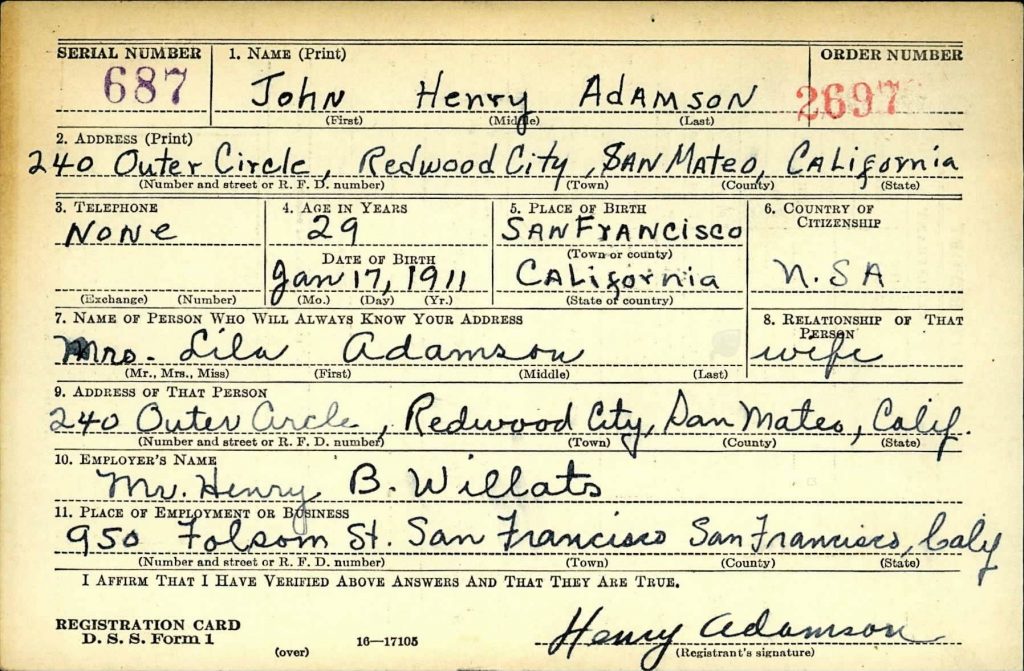 SERIAL NUMBER 1. NAME (Print) ORDER NUMBER
687 John Henry Adamson 2697
(First) (Middle) (Last)
2. ADDRESS (Print)
240 Outer Circle, Redwood City, San Mateo, California
(Number and street or R. F. D. number) (Town) (County) (State)
3. TELEPHONE 4. AGE IN YEARS 5. PLACE OF BIRTH 6. COUNTRY OF CITIZENSHIP
None 29 San Francisco
DATE OF BIRTH (Town or county)
Jan 17, 1911 California U.S.A
(Exchange) (Number) (Mo.) (Day) (Yr.) (State or country)
7. NAME OF PERSON WHO WILL ALWAYS KNOW YOUR ADDRESS 8. RELATIONSHIP OF THAT PERSON
Mrs. Lila Adamson wife
(Mr., Mrs., Miss) (First) (Middle) (Last)
9. ADDRESS OF THAT PERSON
240 Outer Circle, Redwood City, San Mateo, Calif.
(Number and street or R. F. D. number) (Town) (County) (State)
10. EMPLOYER'S NAME
Mr. Henry B. Willats
11. PLACE OF EMPLOYMENT OR BUSINESS
950 Folsom St. San Francisco San Francisco, Calif
(Number and street or R. F. D. number) (Town) (County) (State)
I AFFIRM THAT I HAVE VERIFIED ABOVE ANSWERS AND THAT THEY ARE TRUE.
REGISTRATION CARD Henry Adamson
D. S. S. Form 1 (over) 16—17105 (Registrant's signature)